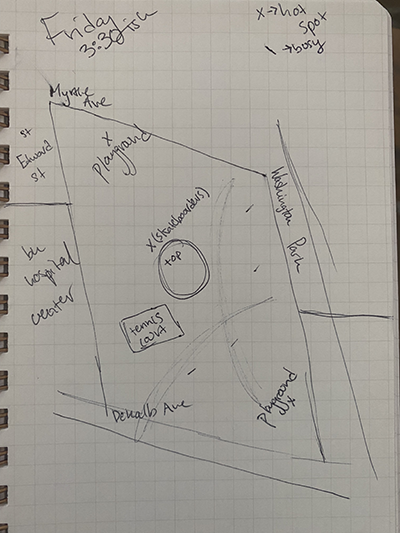 Friday
3:30ish
x→hot
spot
\ →busy
Myrtle
Ave
x
playground
st
Edward
st
Washington Park
x (skateboarders)
top
bk
hospital
center
tennis
court
Dekalb Ave
playground
x